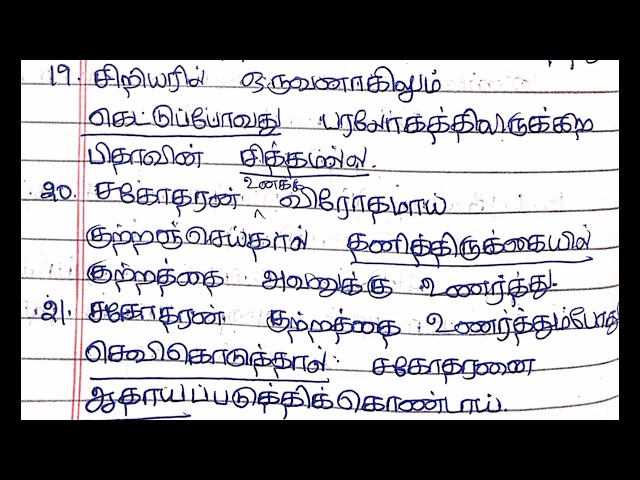 19. சிறியரில் ஒருவனாகிலும்
கெட்டுப்போவது பரலோகத்திலிருக்கிற
பிதாவின் சித்தமல்ல.
20. சகோதரன் உனக்கு விரோதமாய்
குற்றஞ்செய்தால் தனித்திருக்கையில்
குற்றத்தை அவனுக்கு உணர்த்து.
21. சகோதரன் குற்றத்தை உணர்த்தும்போது
செவிகொடுத்தால் சகோதரனை
ஆதாயப்படுத்திக்கொண்டாய்.